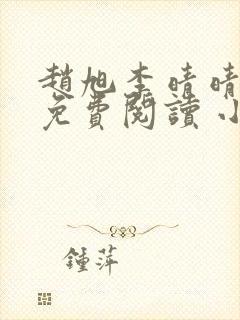 趙旭李晴晴
免費閱讀小
鍾萍